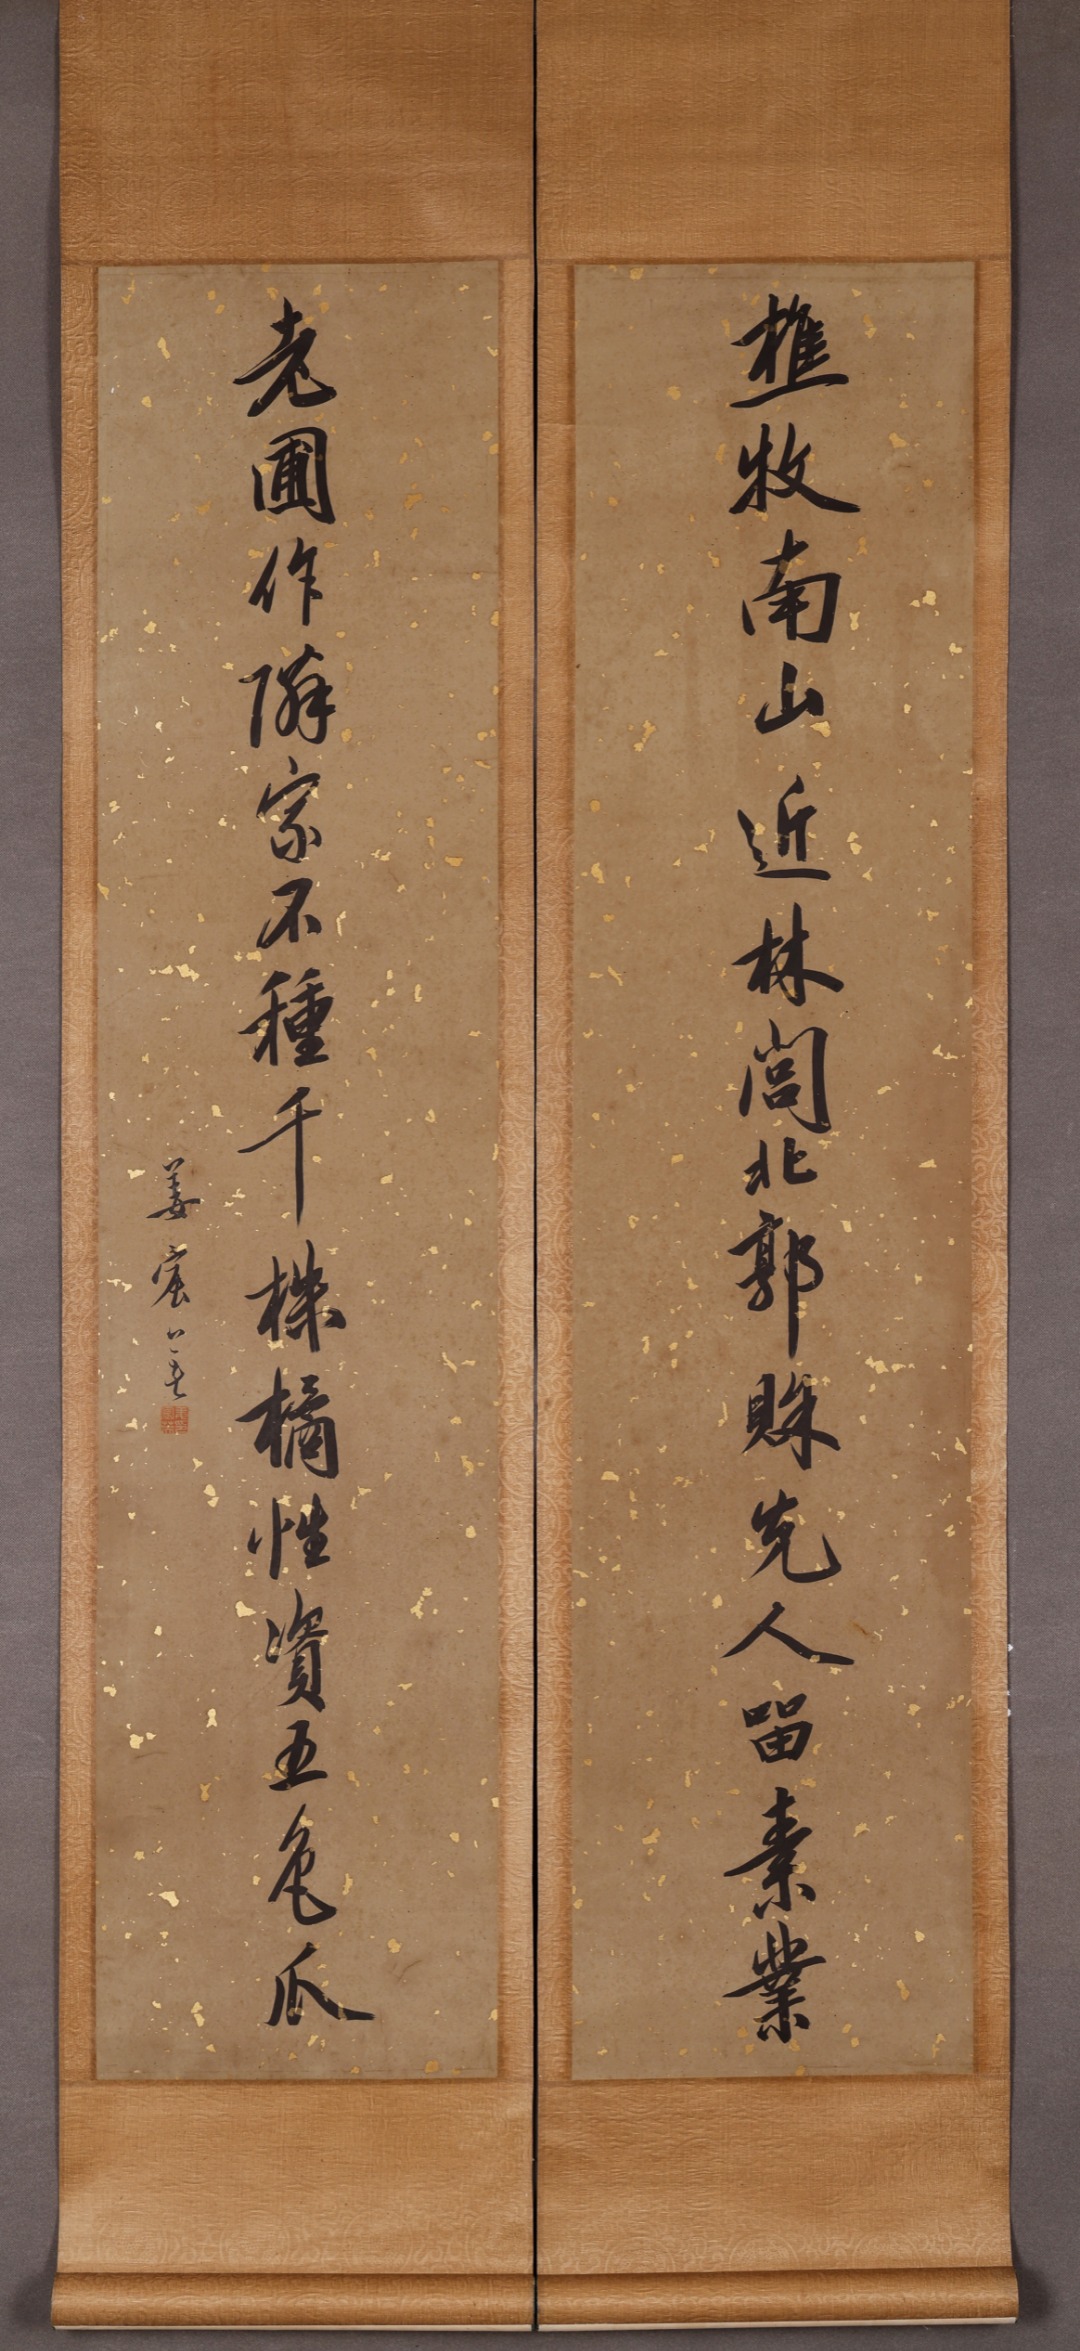 樵牧南山近林閭北郭賒先人留素業
老圃作隣家不種千株橘惟資五色瓜
姜宸英